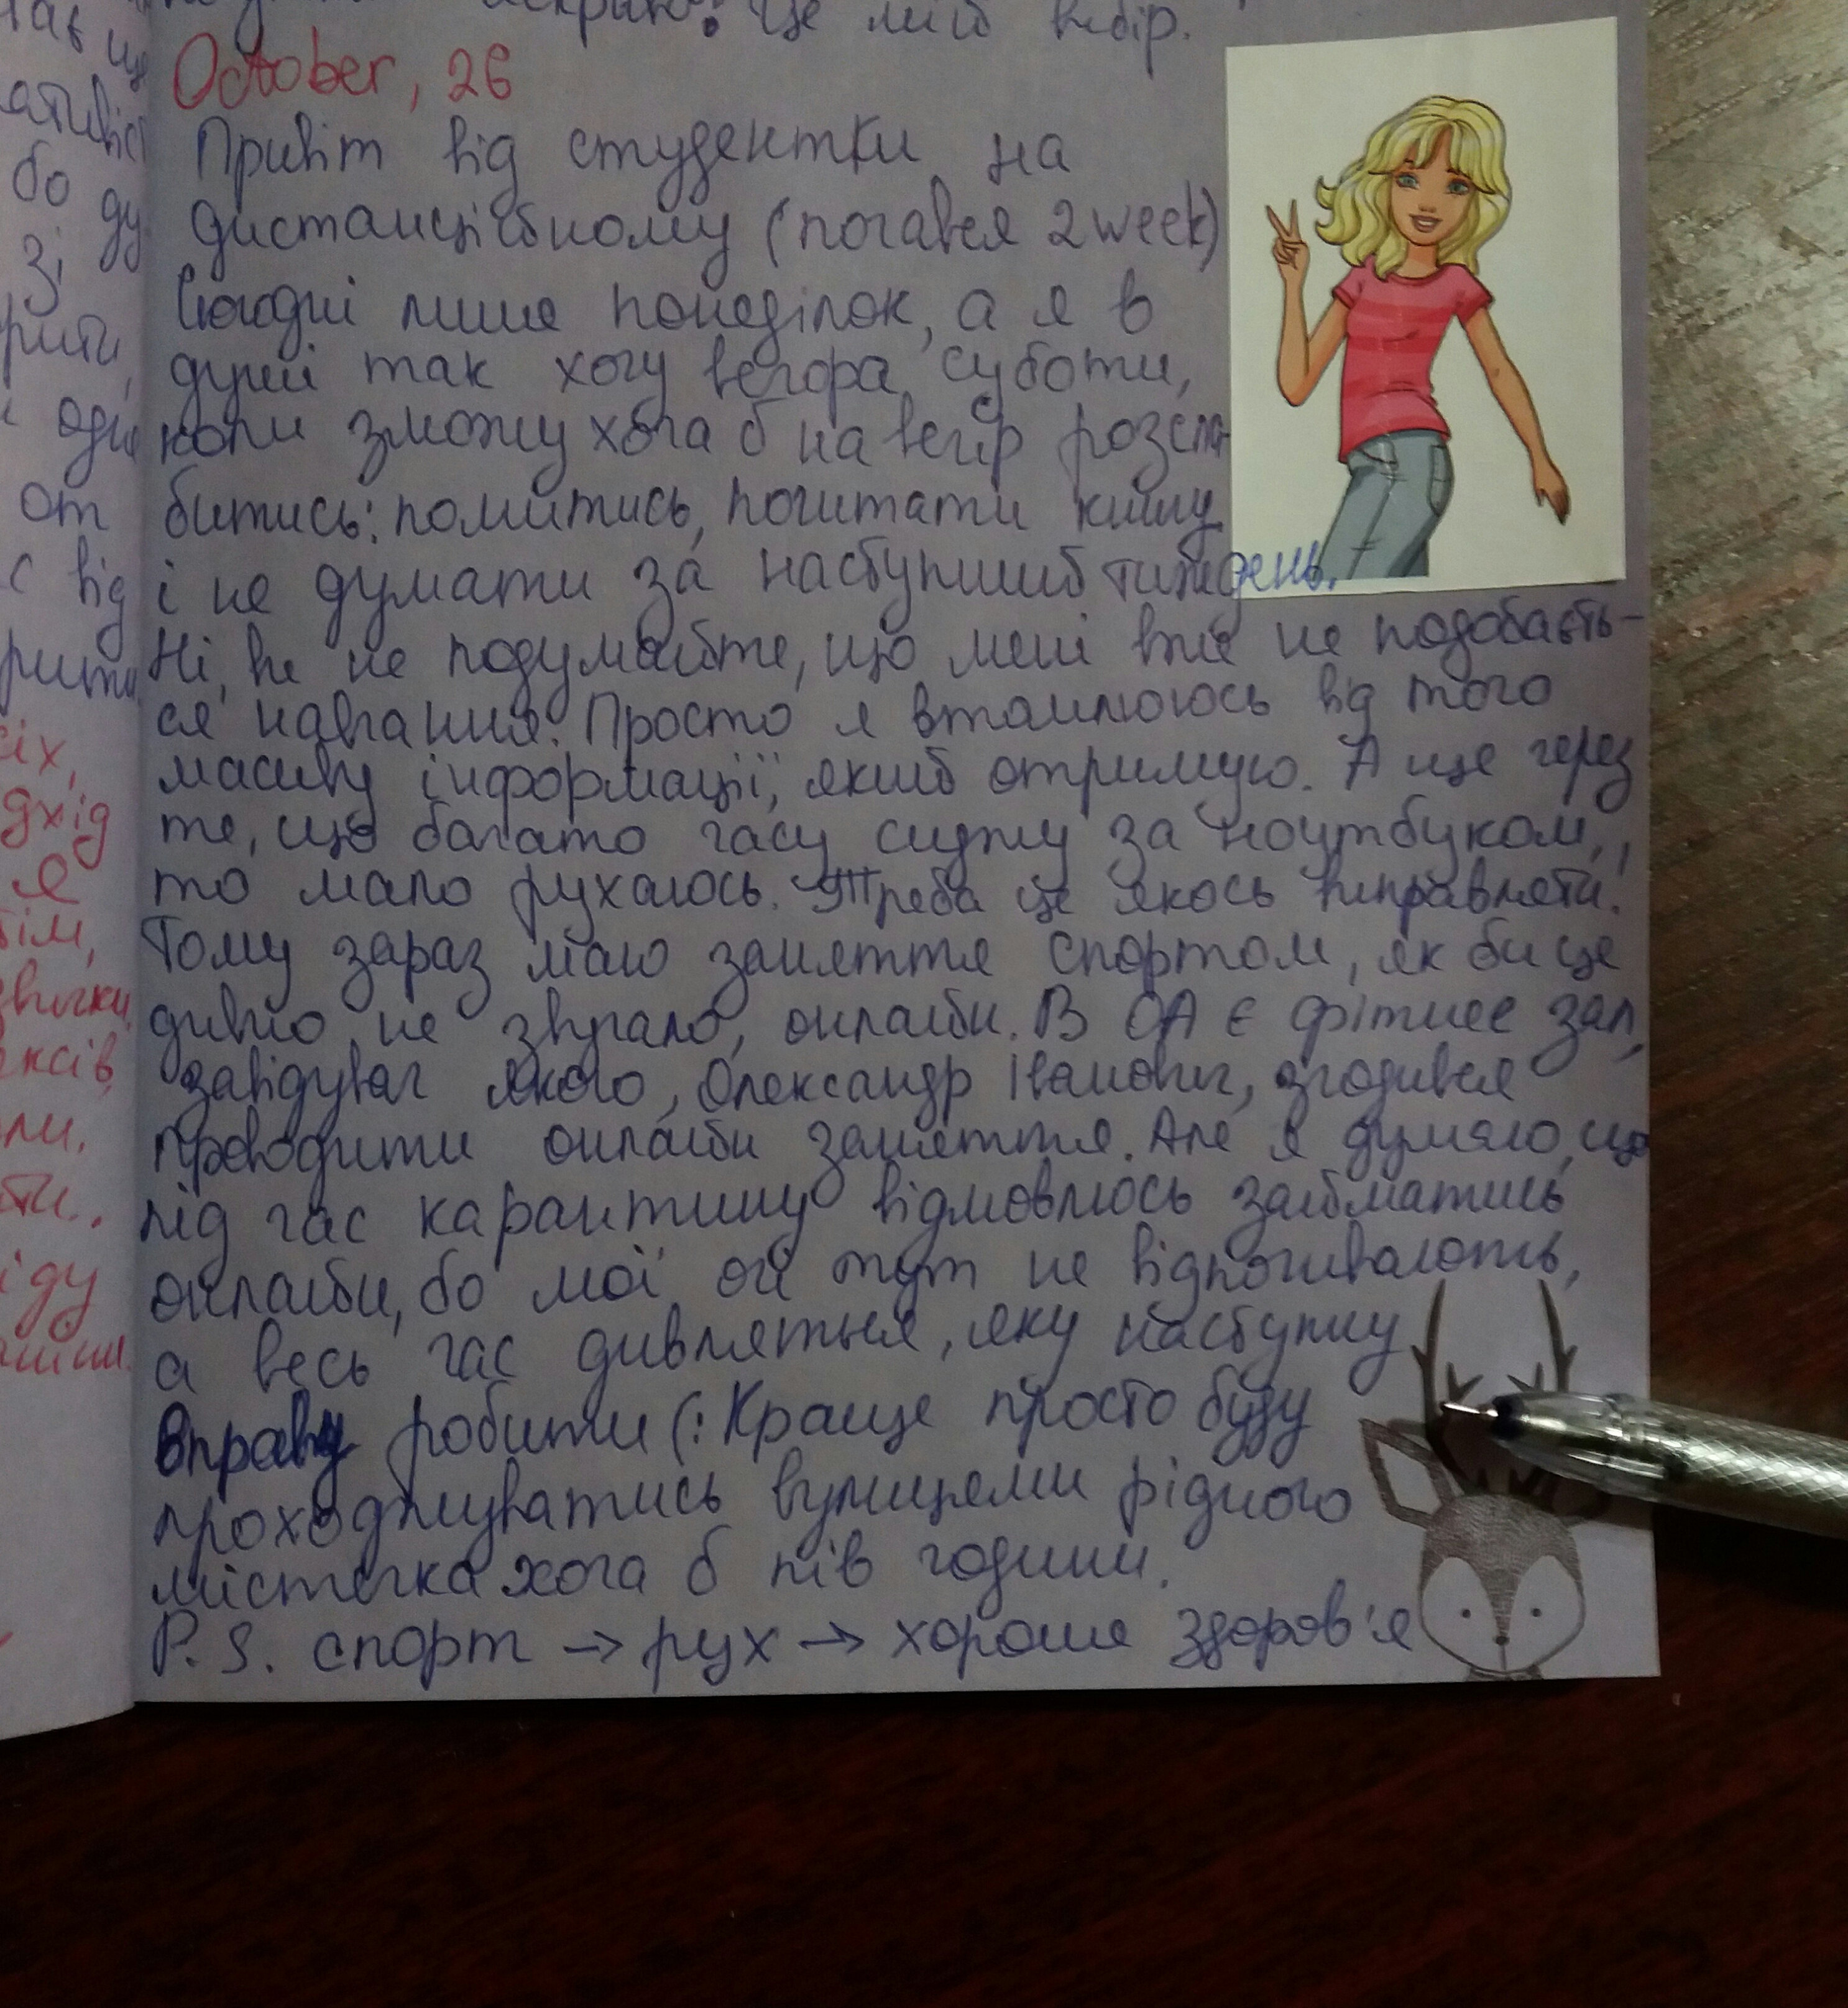 це мій вибір.
October, 26
Привіт від студентки на
дистанційному (почався 2 week)
Сьогодні лише понеділок, а я в
душі так хочу вечора суботи,
коли зможу хоча б на вечір розсла-
битись: помитись, почитати книгу
і не думати за наступний тиждень.
Ні, ви не подумайте, що мені вже не подобаєть-
ся навчання. Просто я втомлююсь від того
масиву інформації, який отримую. А ще через
те, що багато часу сиджу за ноутбуком,
то мало рухаюсь. Треба це якось виправляти.
Тому зараз маю заняття спортом, як би це
дивно не звучало, онлайн. В ОА є фітнес зал,
завідувач якого, Олександр Іванович, згодився
проводити онлайн заняття. Але я думаю, що
під час карантину відмовлюсь займатись
онлайн, бо мої очі тут не відпочивають,
а весь час дивляться, яку наступну
вправу робити (: Краще просто буду
проходжуватись вулицями рідного
містечка хоча б пів години.
P. S. спорт → рух → хороше здоров'я